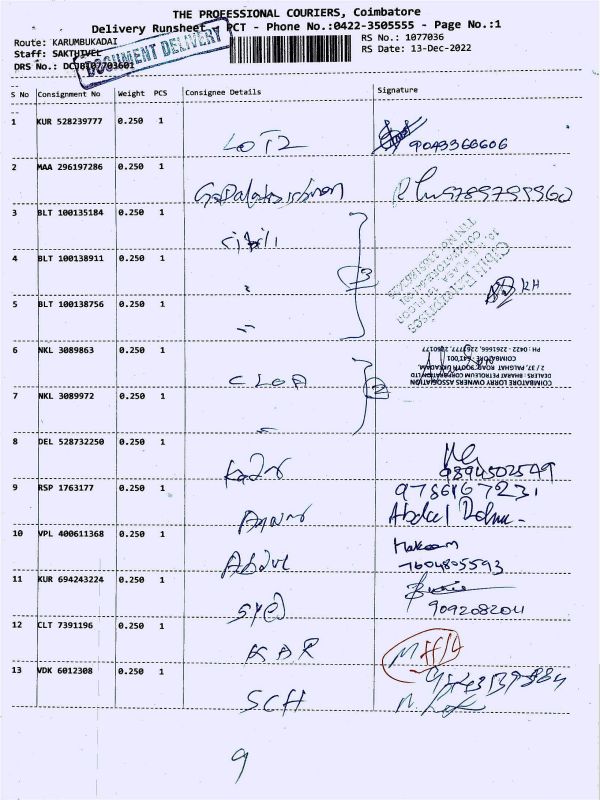 THE PROFESSIONAL COURIERS, Coimbatore
Delivery Runsheet - PCT - Phone No.:0422-3505555 - Page No.:1
Route: KARUMBUKADAI
RS No.: 1077036
Staff: SAKTHIVEL
RS Date: 13-Dec-2022
DRS No.:
DOCUMENT DELIVERY
S No Consignment No Weight PCS Consignee Details Signature
1 KUR 528239777 0.250 1
LOTZ 9043366606
2 MAA 296197286 0.250 1
Gopalakrishnan 9789795960
3 BLT 100135184 0.250 1
4 BLT 100138911 0.250 1
3
5 BLT 100138756 0.250 1
6 NKL 3089863 0.250 1
CLOA
COIMBATORE LORRY OWNERS ASSOCIATION
DEALERS : BHARAT PETROLEUM CORPORATION LTD
2 37, PALGHAT ROAD, SOUTH UKKADAM,
COIMBATORE 641 001
7 NKL 3089972 0.250 1
2
8 DEL 528732250 0.250 1
Kadar 9894502549
9 RSP 1763177 0.250 1
Abdul
10 VPL 400611368 0.250 1
Abdul 7604805593
11 KUR 694243224 0.250 1
Syed 9092082011
12 CLT 7391196 0.250 1
KBR
13 VDK 6012308 0.250 1
SCH
9